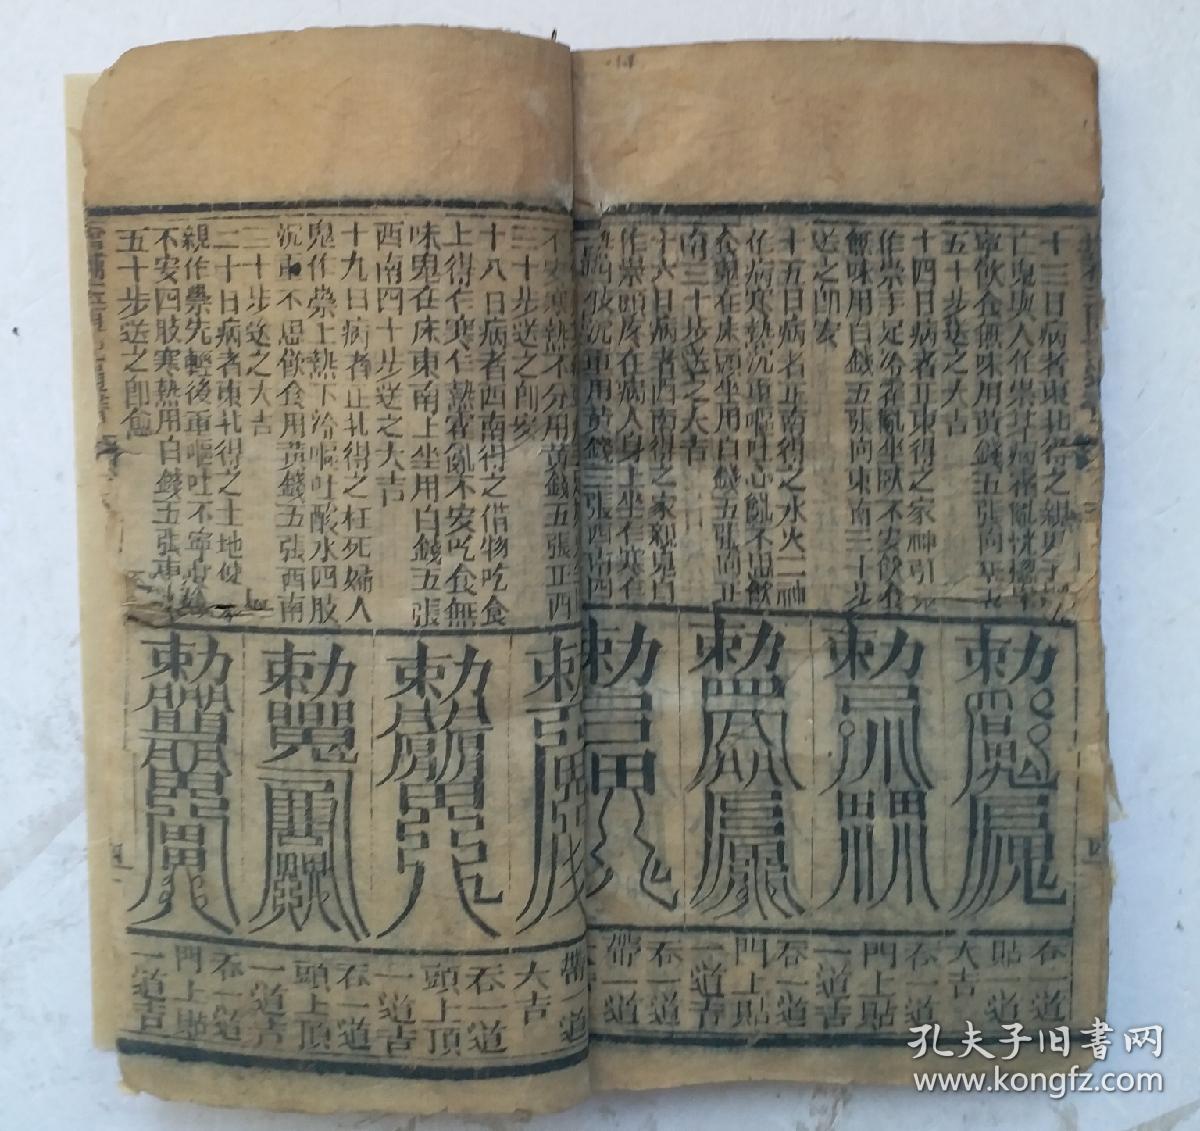 十三日病者東北得之親
亡鬼與人作祟其病
寧飲食無味用黃錢五張向
五十步送之大吉
十四日病者正東得之家神引
作祟手足冷霍亂坐臥不安飲食
無味用白錢五張向東南三十步
送之即安
十五日病者正南得之水火二神
作病寒熱沉重嘔吐心亂不思飲
食鬼在床頭坐用白錢五張向正
南三十步送之大吉
十六日病者西南得之家親鬼
作祟頭疼在病人身上坐作寒作
四肢沉重用黃錢三張西南四
寒熱不分用黃錢五張正西
三十步送之即安
十八日病者西南得之借物吃食
上得作寒作熱霍亂不安吃食無
味鬼在床東南上坐用白錢五張
西南四十步送之大吉
十九日病者正北得之枉死婦人
鬼作祟上熱下冷嘔吐酸水四肢
沉重不思飲食用黃錢五張西南
三十步送之大吉
二十日病者東北得之土地使
親作祟先輕後重嘔吐不寧
不安四肢寒熱用白錢五張東
五十步送之即愈
勅
勅
勅
勅
勅
勅
勅
勅
吞一道
貼
大吉
吞一道
門上貼
一道吉
吞一道
門上貼
一道吉
吞一道
帶一道
帶一道
大吉
吞一道
頭上頂
一道吉
吞一道
頭上頂
一道吉
吞一道
門上貼
一道吉
孔夫子旧书网
www.kongfz.com